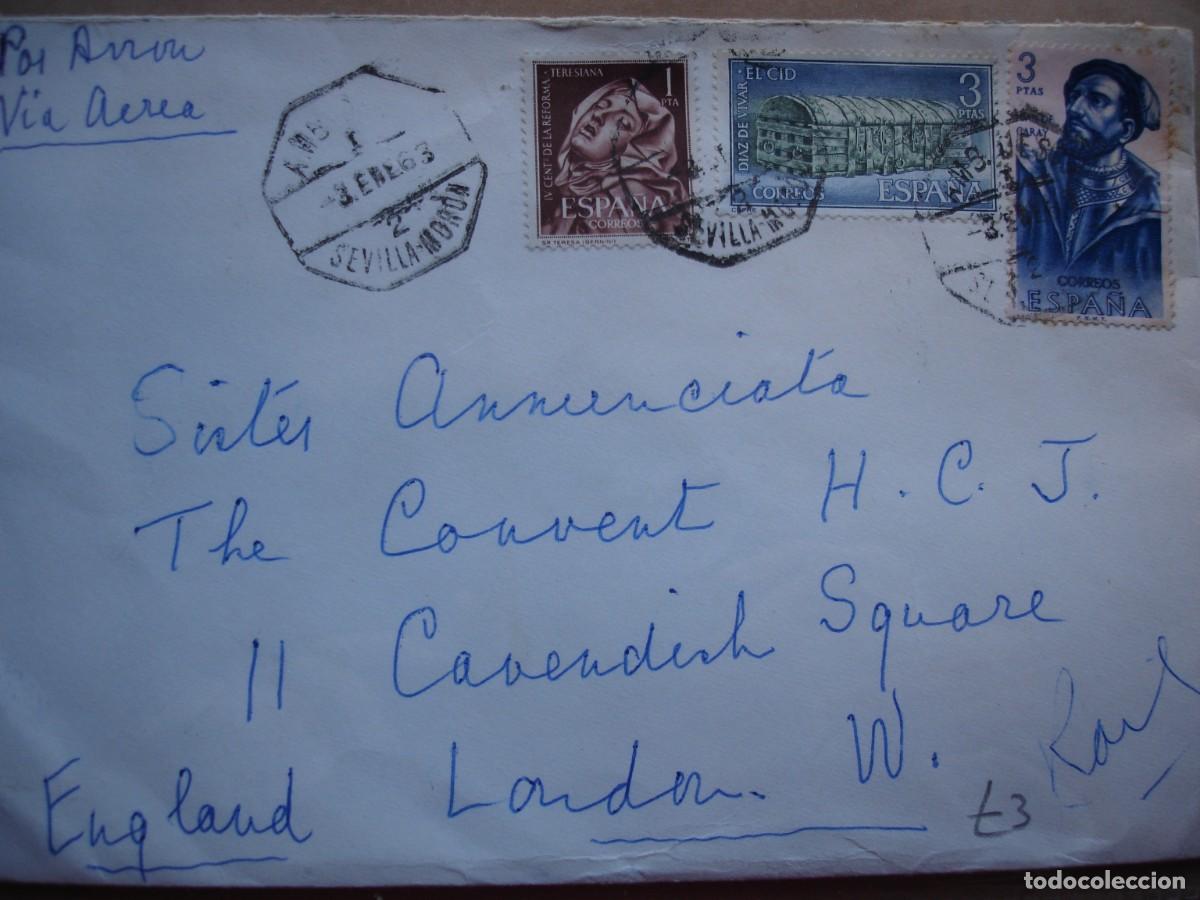 Por Avion
Via Aerea
AMB
1
-3.ENE.63
2
SEVILLA-MORÓN
IV CENT. DE LA REFORMA TERESIANA
1
PTA
ESPAÑA
CORREOS
STA TERESA (BERNINI)
DIAZ DE VIVAR EL CID
3
PTAS
CORREOS ESPAÑA
SEVILLA-MO
3
PTAS
GARAY
CORREOS
ESPAÑA
F.N.M.T.
Sister Annunciata
The Convent H.C.J.
11 Cavendish Square
London. W.
England
£3
todocoleccion